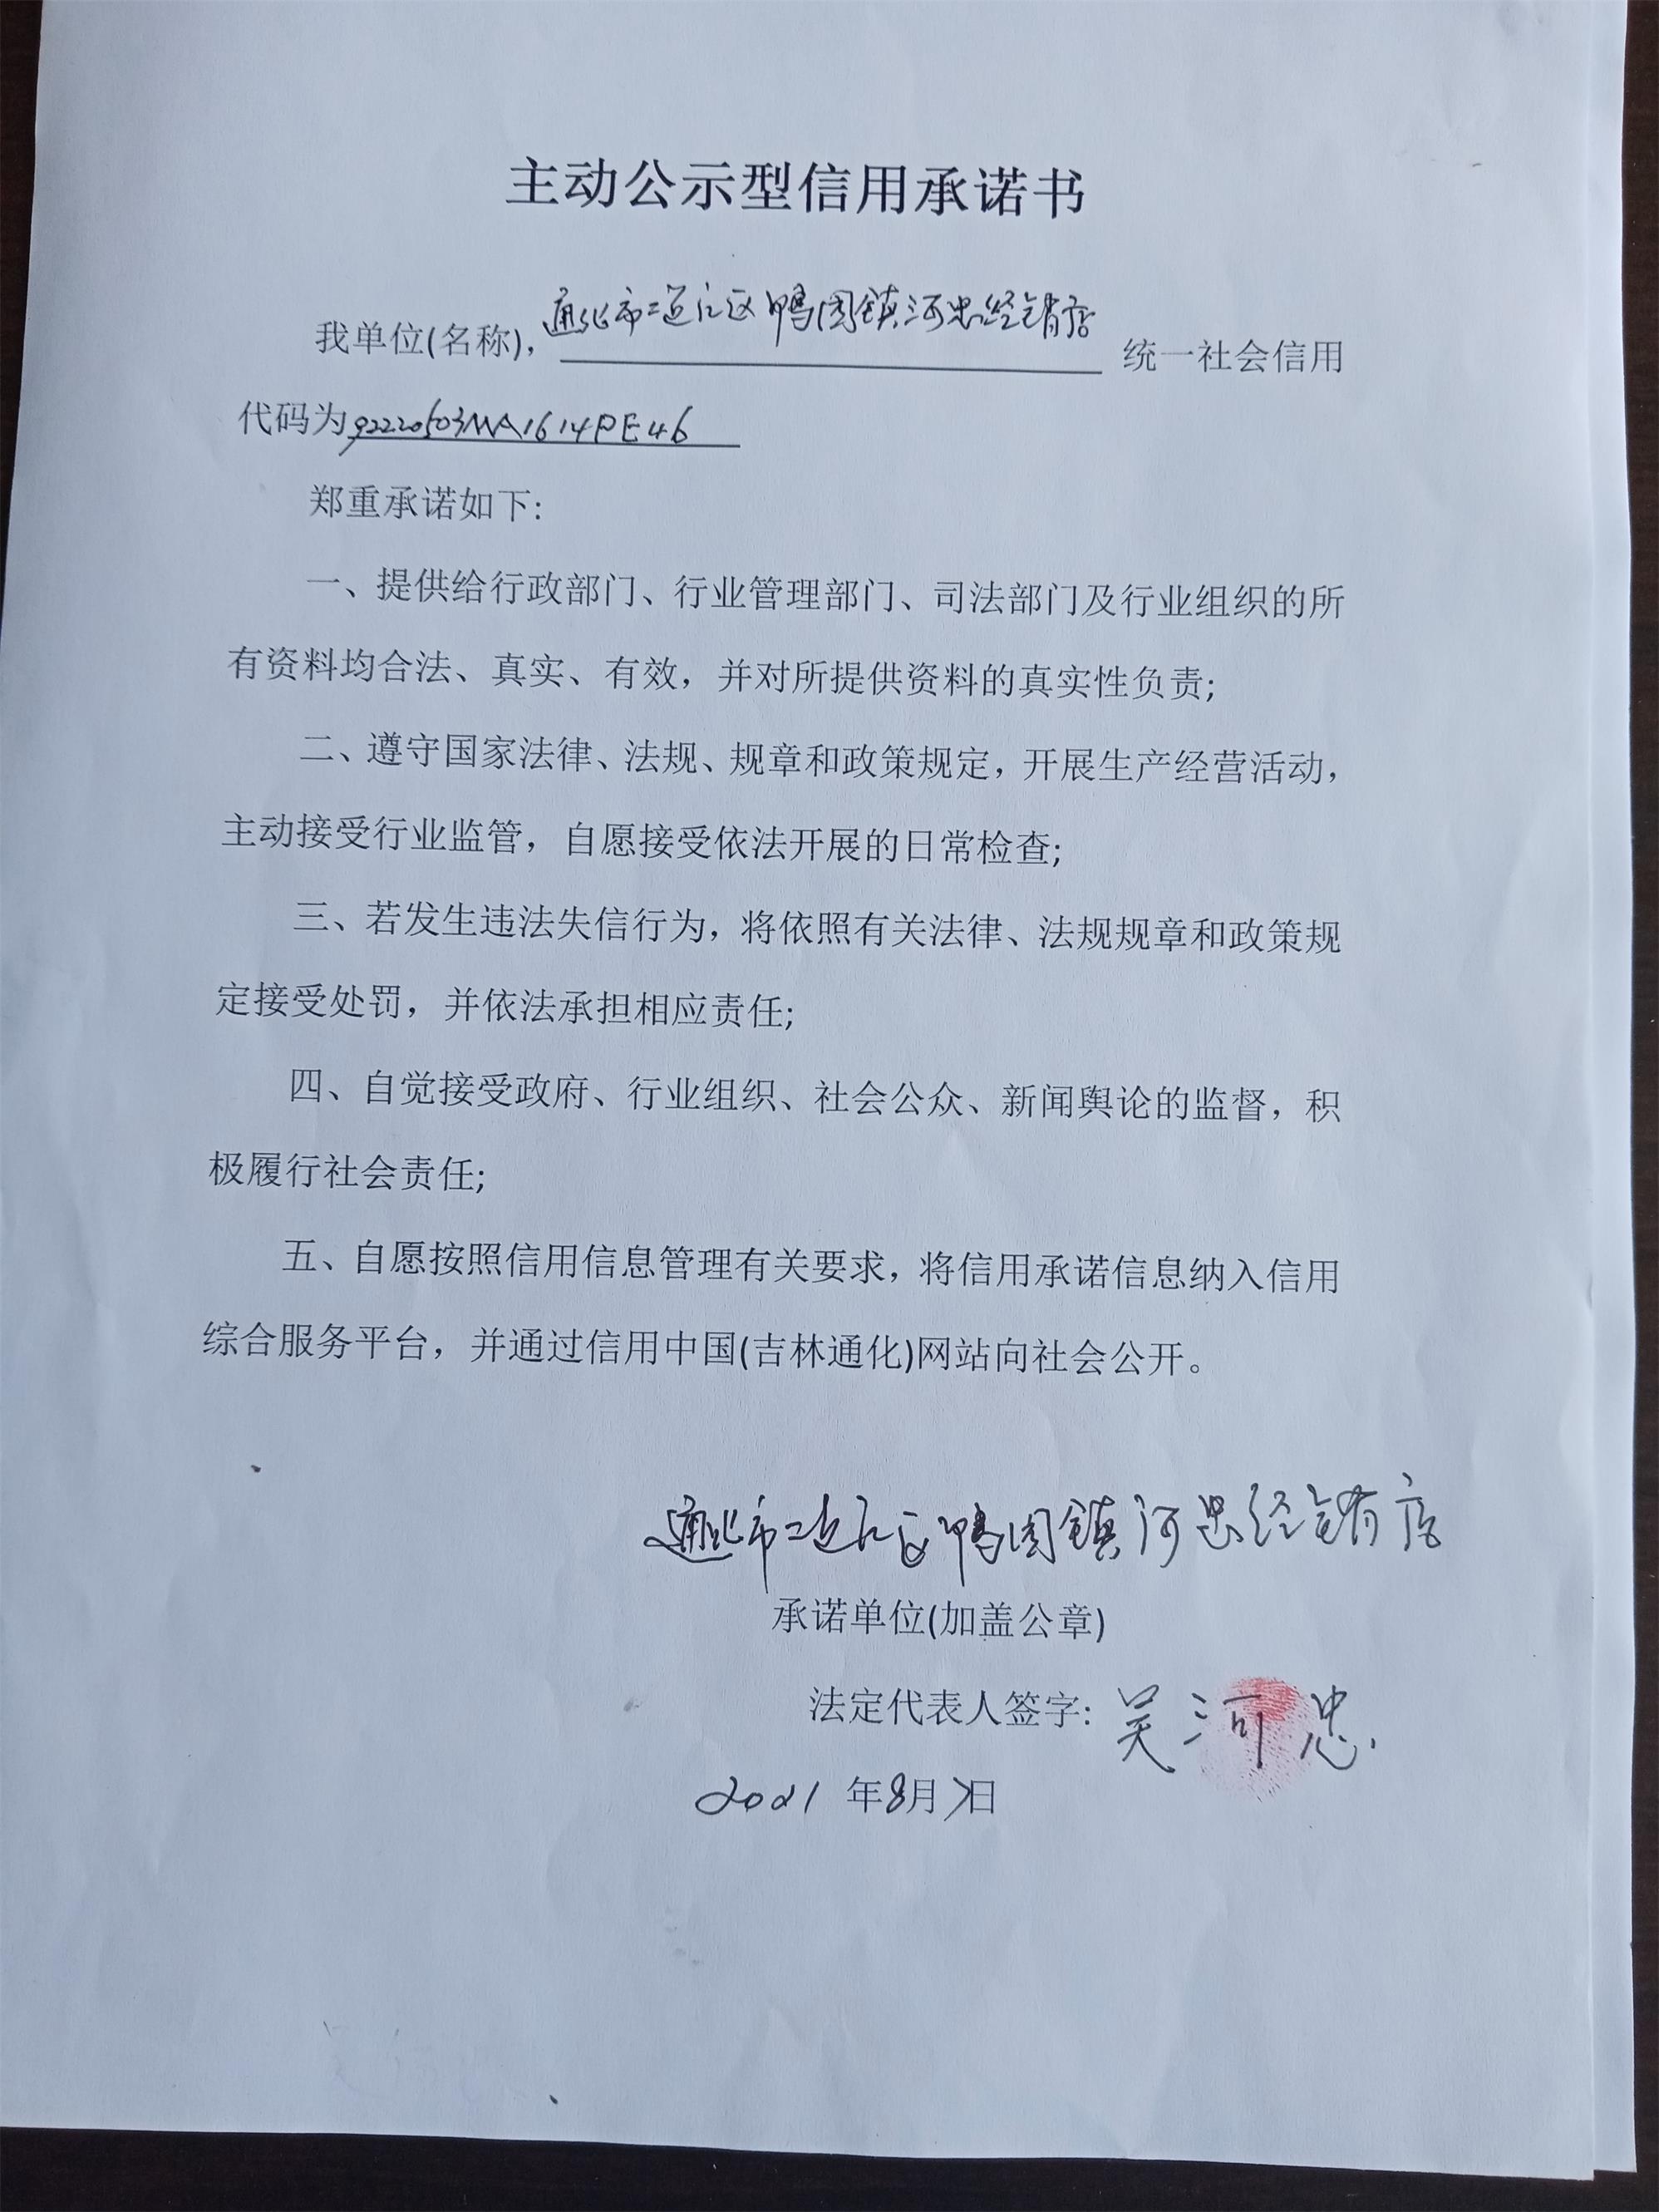 主动公示型信用承诺书
我单位(名称)，通化市二道江区鸭园镇河忠经销店 统一社会信用
代码为92220503MA1614PE46
郑重承诺如下:
一、提供给行政部门、行业管理部门、司法部门及行业组织的所
有资料均合法、真实、有效，并对所提供资料的真实性负责;
二、遵守国家法律、法规、规章和政策规定，开展生产经营活动，
主动接受行业监管，自愿接受依法开展的日常检查;
三、若发生违法失信行为，将依照有关法律、法规规章和政策规
定接受处罚，并依法承担相应责任;
四、自觉接受政府、行业组织、社会公众、新闻舆论的监督，积
极履行社会责任;
五、自愿按照信用信息管理有关要求，将信用承诺信息纳入信用
综合服务平台，并通过信用中国(吉林通化)网站向社会公开。
通化市二道江区鸭园镇河忠经销店
承诺单位(加盖公章)
法定代表人签字: 吴河忠
2021 年8月7日